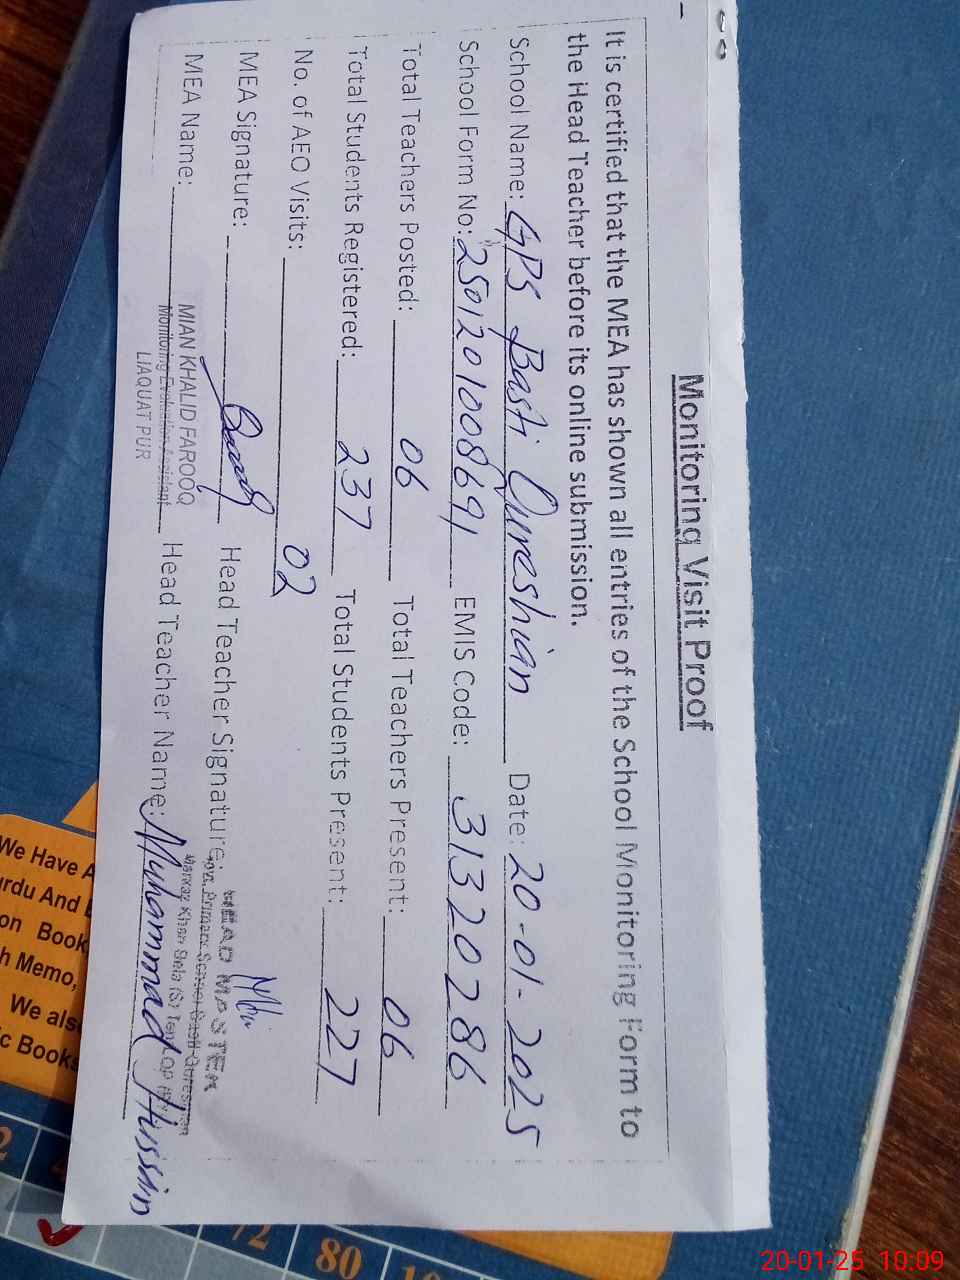 Monitoring Visit Proof
It is certified that the MEA has shown all entries of the School Monitoring Form to
the Head Teacher before its online submission.
School Name: GPS Basti Qureshian Date: 20-01-2025
School Form No: 2501201008691 EMIS Code: 31320286
Total Teachers Posted: 06 Total Teachers Present: 06
Total Students Registered: 237 Total Students Present: 227
No. of AEO Visits: 02
MEA Signature: Head Teacher Signature:
HEAD MASTER
MEA Name: MIAN KHALID FAROOQ Head Teacher Name: Muhammad Hussin
Monitoring Evaluation Assistant
LIAQUAT PUR
We Have A
urdu And
on Book
h Memo,
We als
ic Books
72
80
20-01-25 10:09